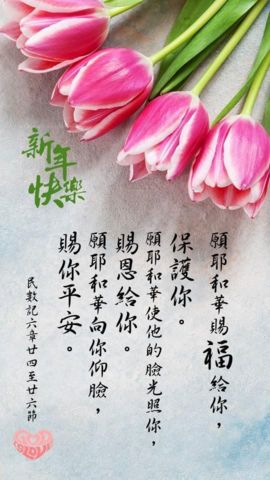 新年快樂
願耶和華賜福給你，
保護你。
願耶和華使他的臉光照你，
賜恩給你。
願耶和華向你仰臉，
賜你平安。
民數記六章廿四至廿六節